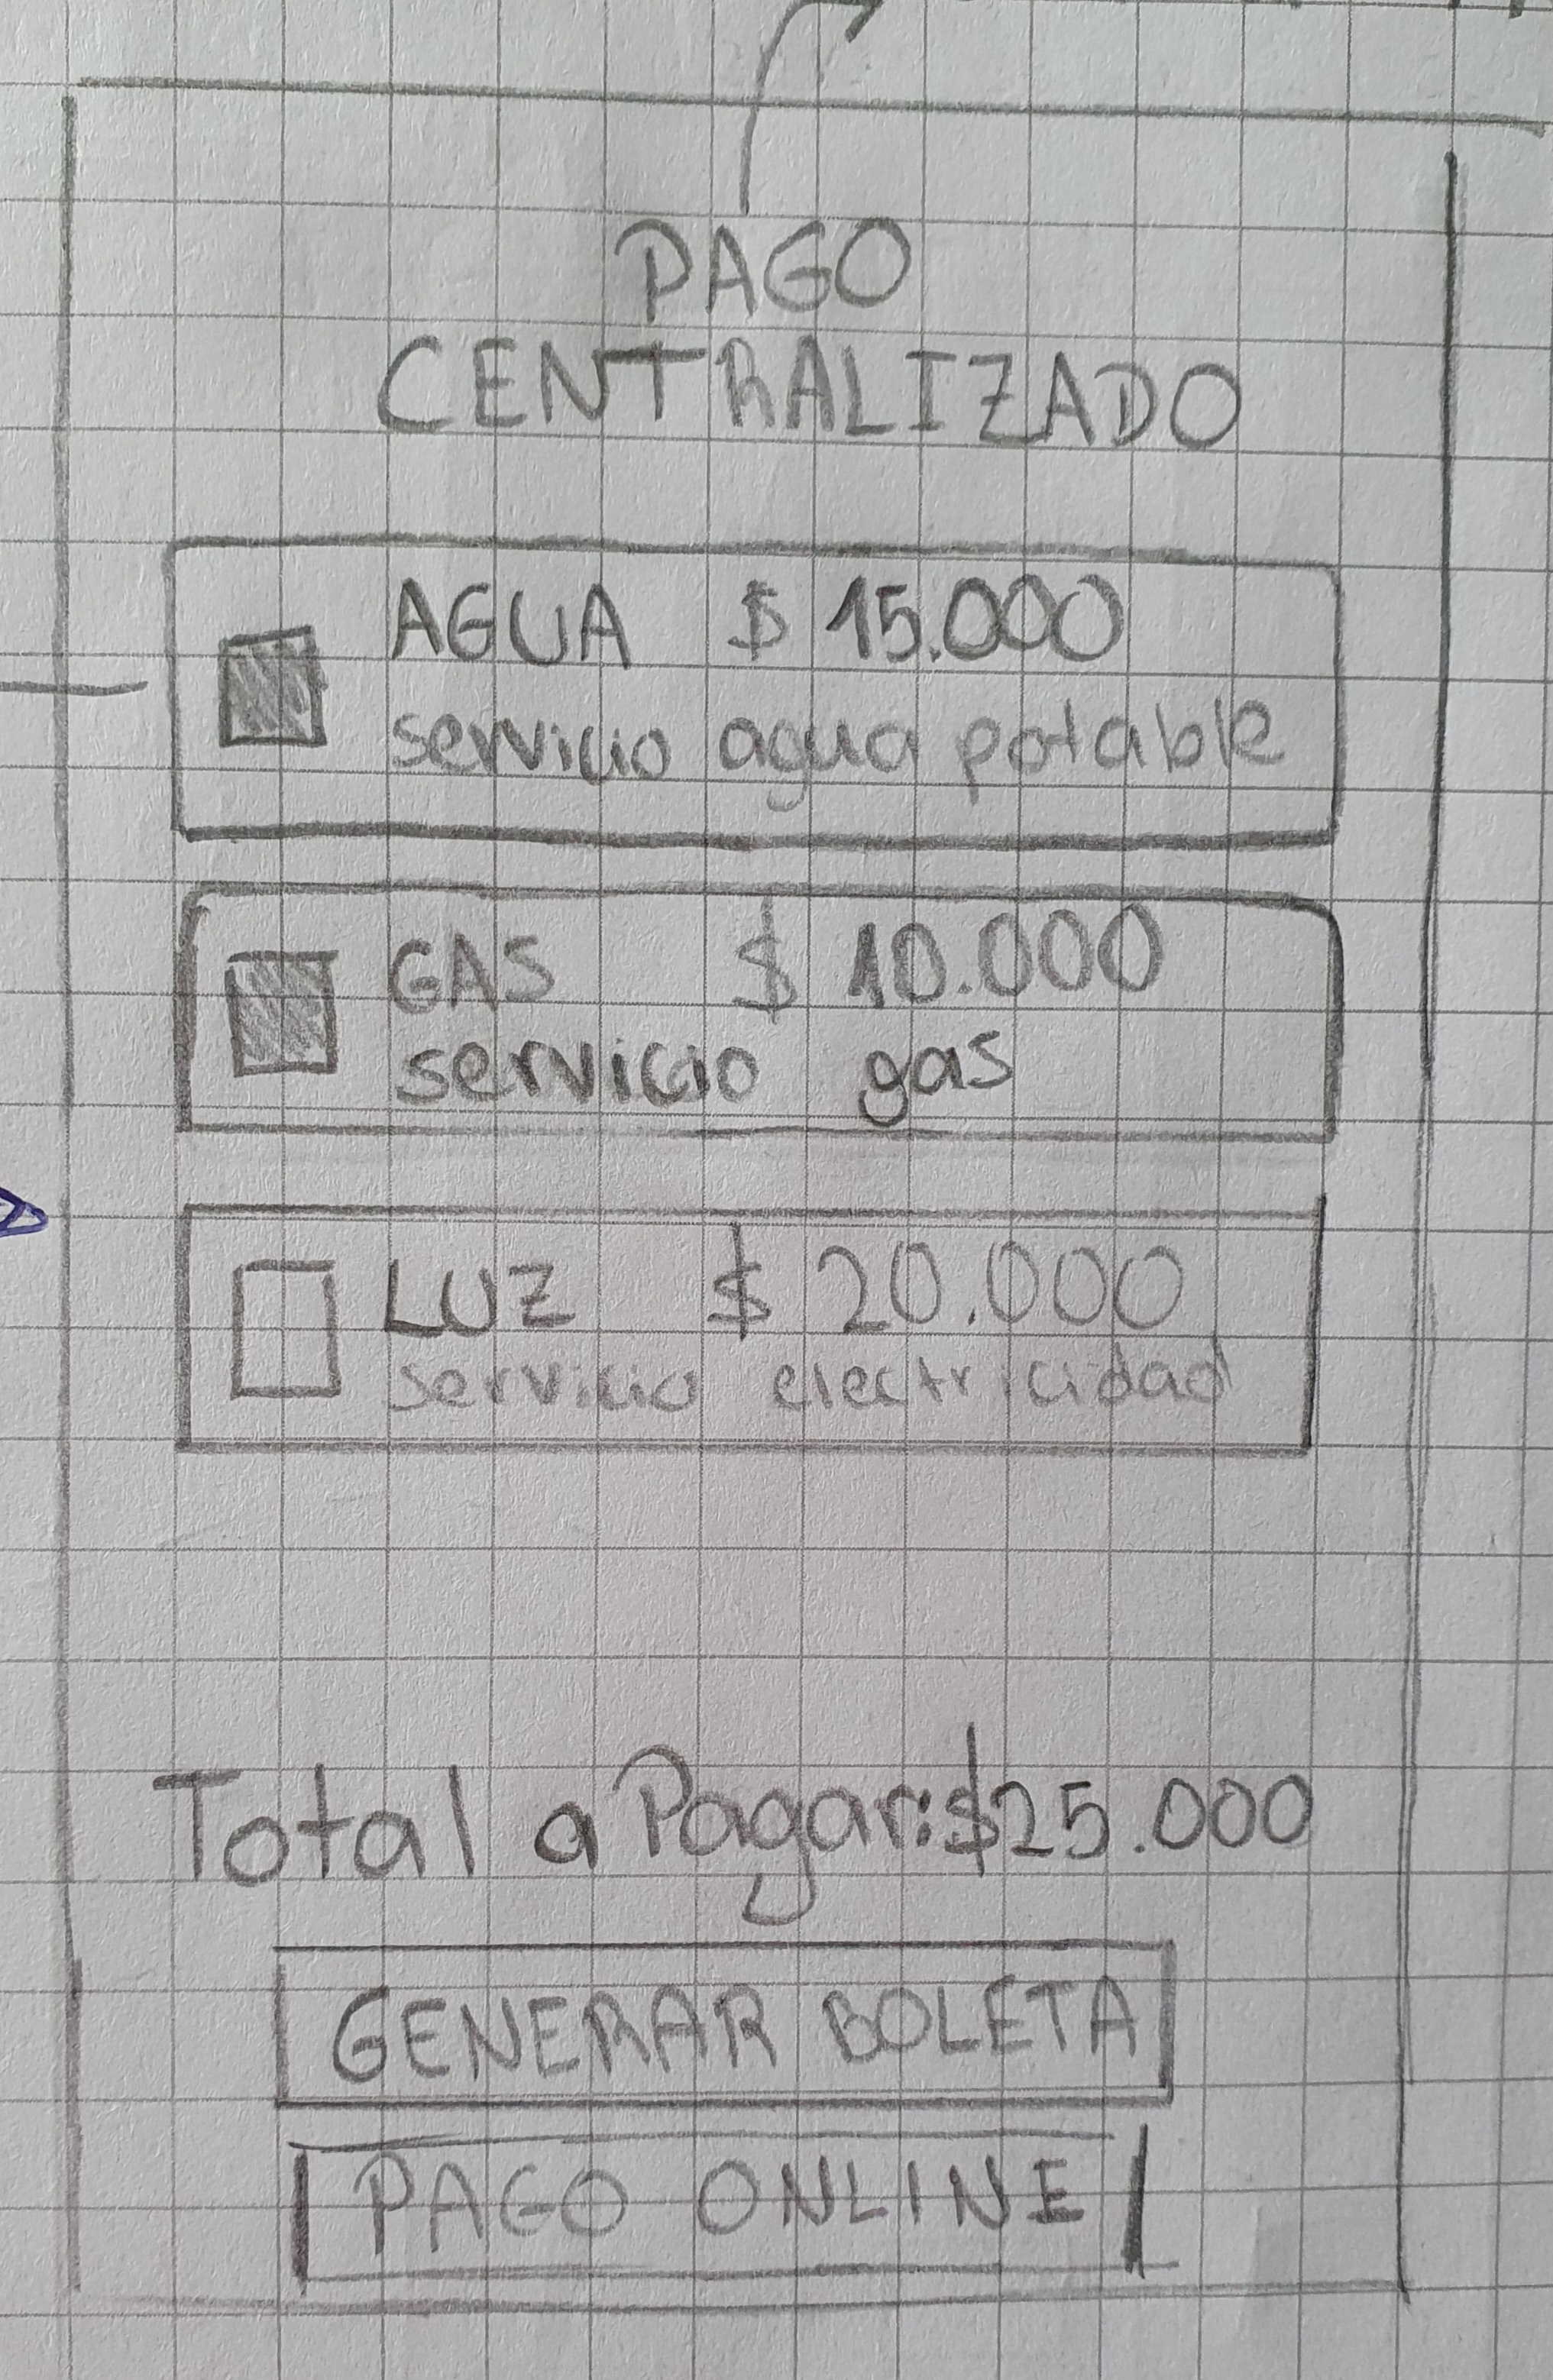 PAGO
CENTRALIZADO
AGUA $ 15.000
servicio agua potable
GAS $ 10.000
servicio gas
LUZ $ 20.000
servicio electricidad
Total a Pagar: $25.000
GENERAR BOLETA
PAGO ONLINE